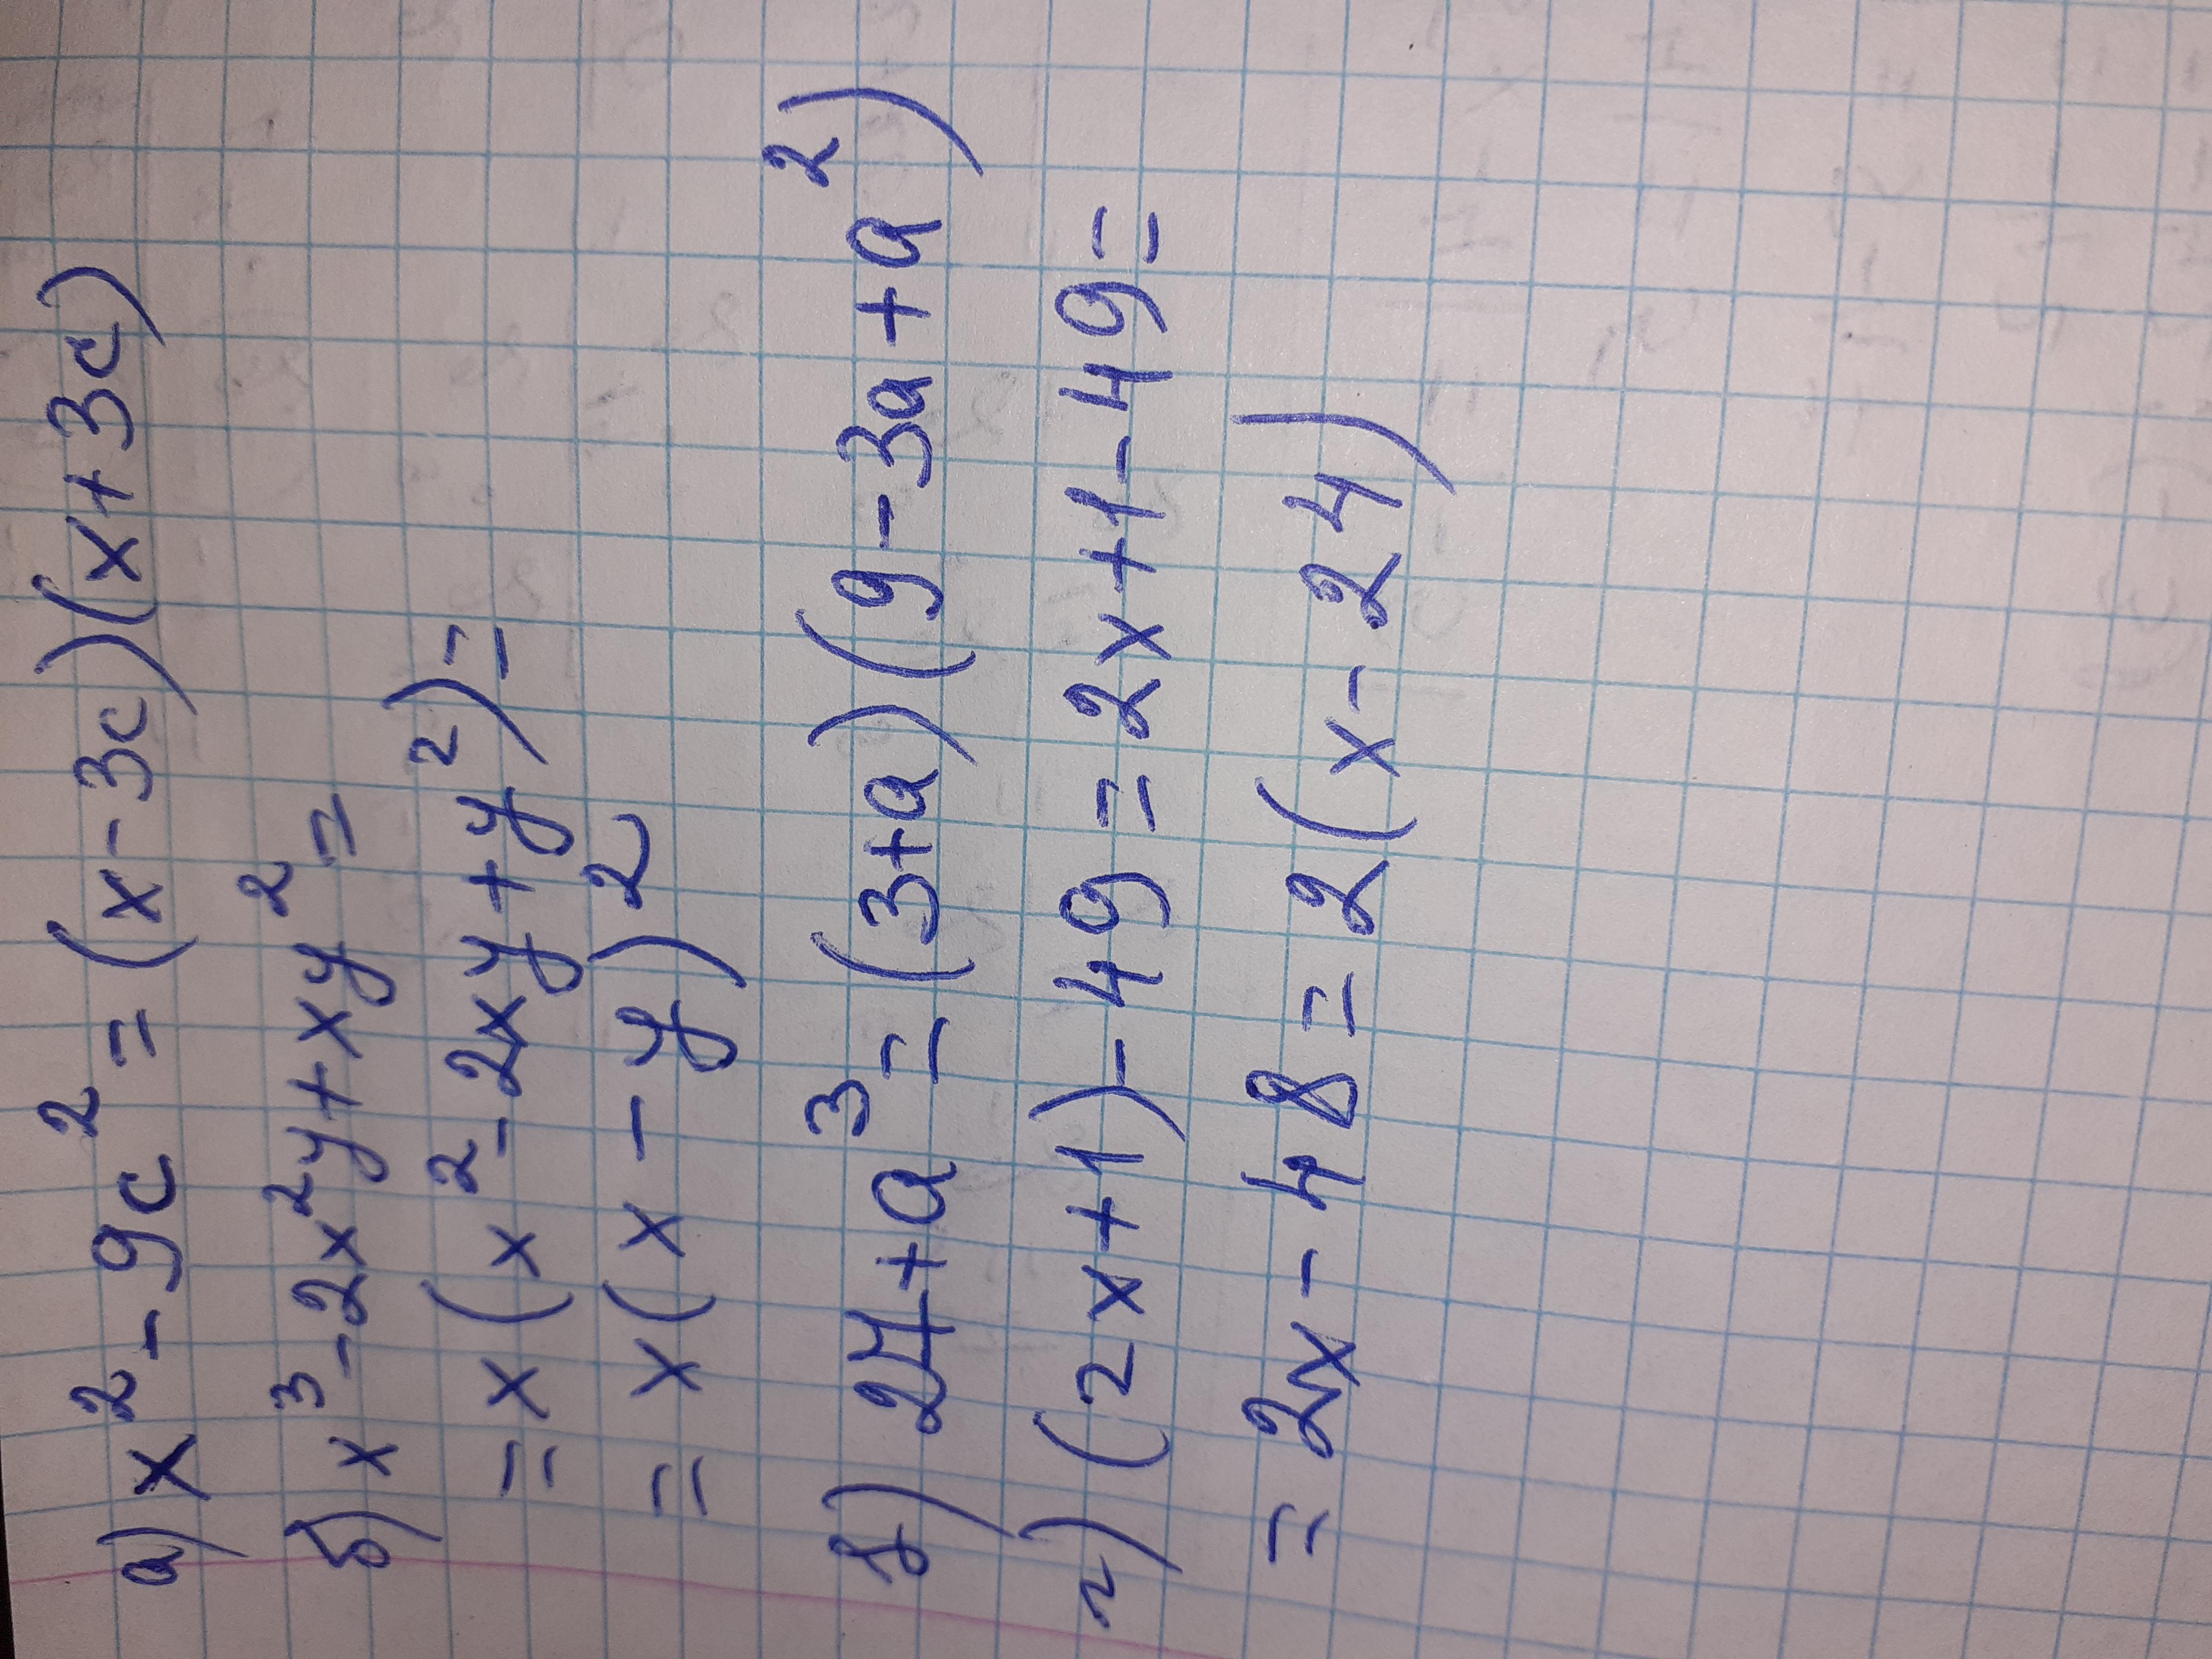 а) x² - 9c² = (x - 3c)(x + 3c)
б) x³ - 2x²y + xy² =
= x (x² - 2xy + y²) =
= x (x - y)²
в) 27 + a³ = (3 + a) (9 - 3a + a²)
г) (2x + 1) - 49 = 2x + 1 - 49 =
= 2x - 48 = 2 (x - 24)